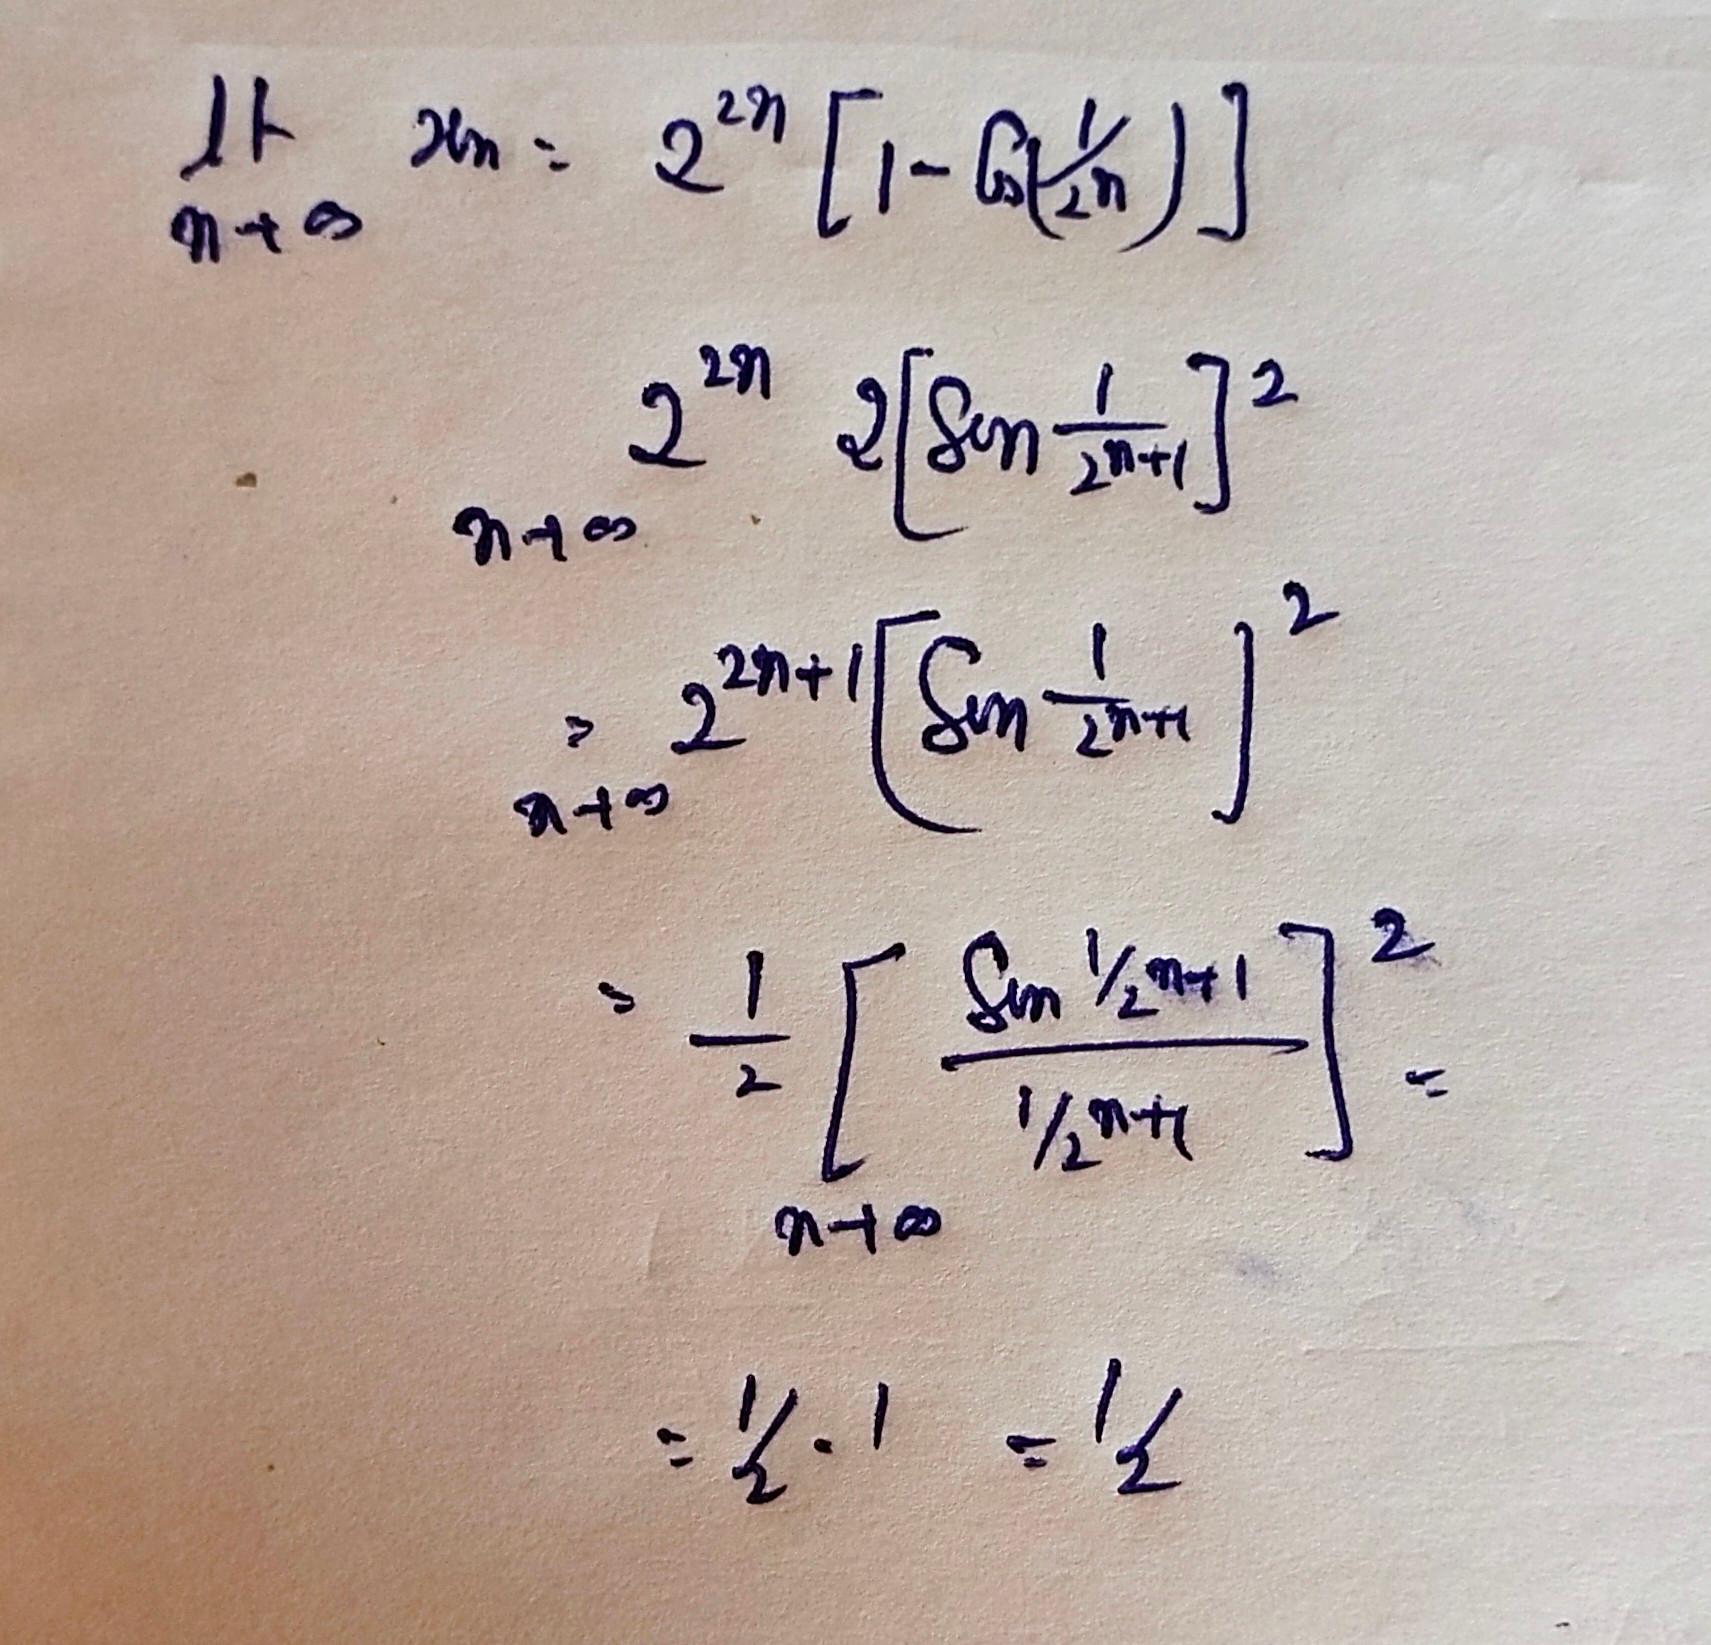 lt n→∞ xn = 2^{2n} [1 - Cos(1/2^n)]
n→∞ 2^{2n} 2[Sin 1/2^{n+1}]^2
= n→∞ 2^{2n+1} [Sin 1/2^{n+1}]^2
= 1/2 n→∞ [Sin 1/2^{n+1} / 1/2^{n+1}]^2 =
= 1/2 . 1 = 1/2